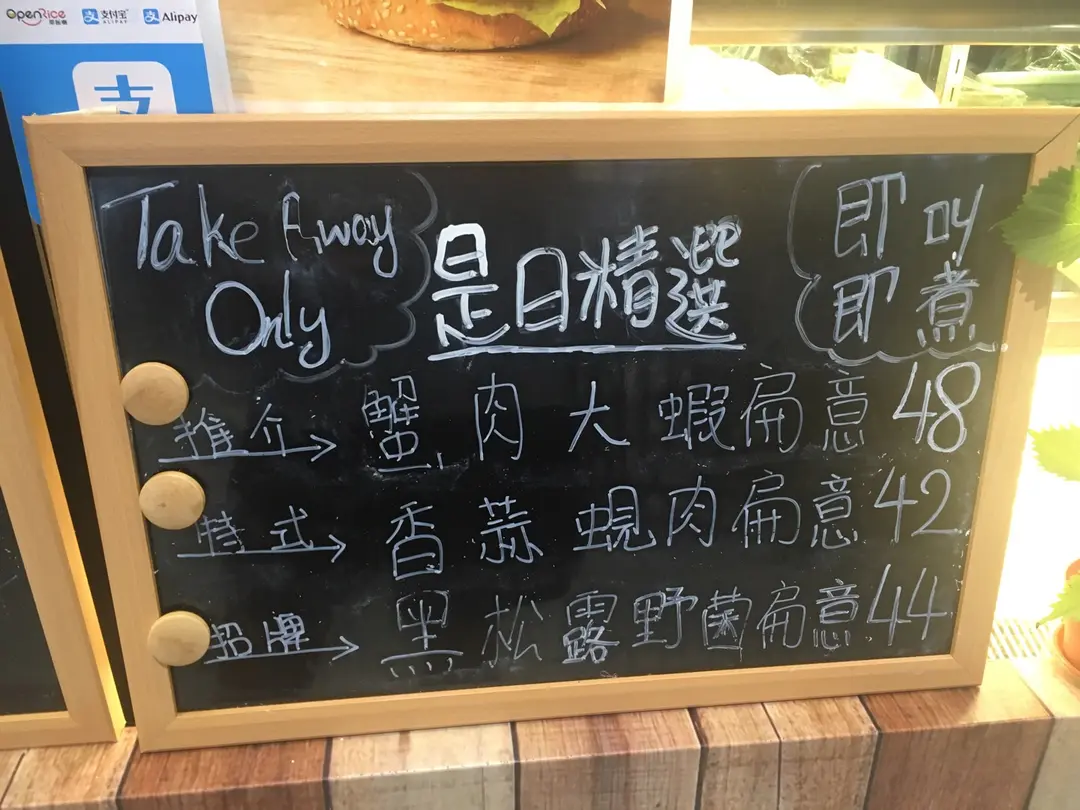 OpenRice 支付宝 ALIPAY Alipay
支
Take Away
Only
是日精選
即叫
即煮
推介→ 蟹肉大蝦扁意 48
特式→ 香蒜蜆肉扁意 42
招牌→ 黑松露野菌扁意 44